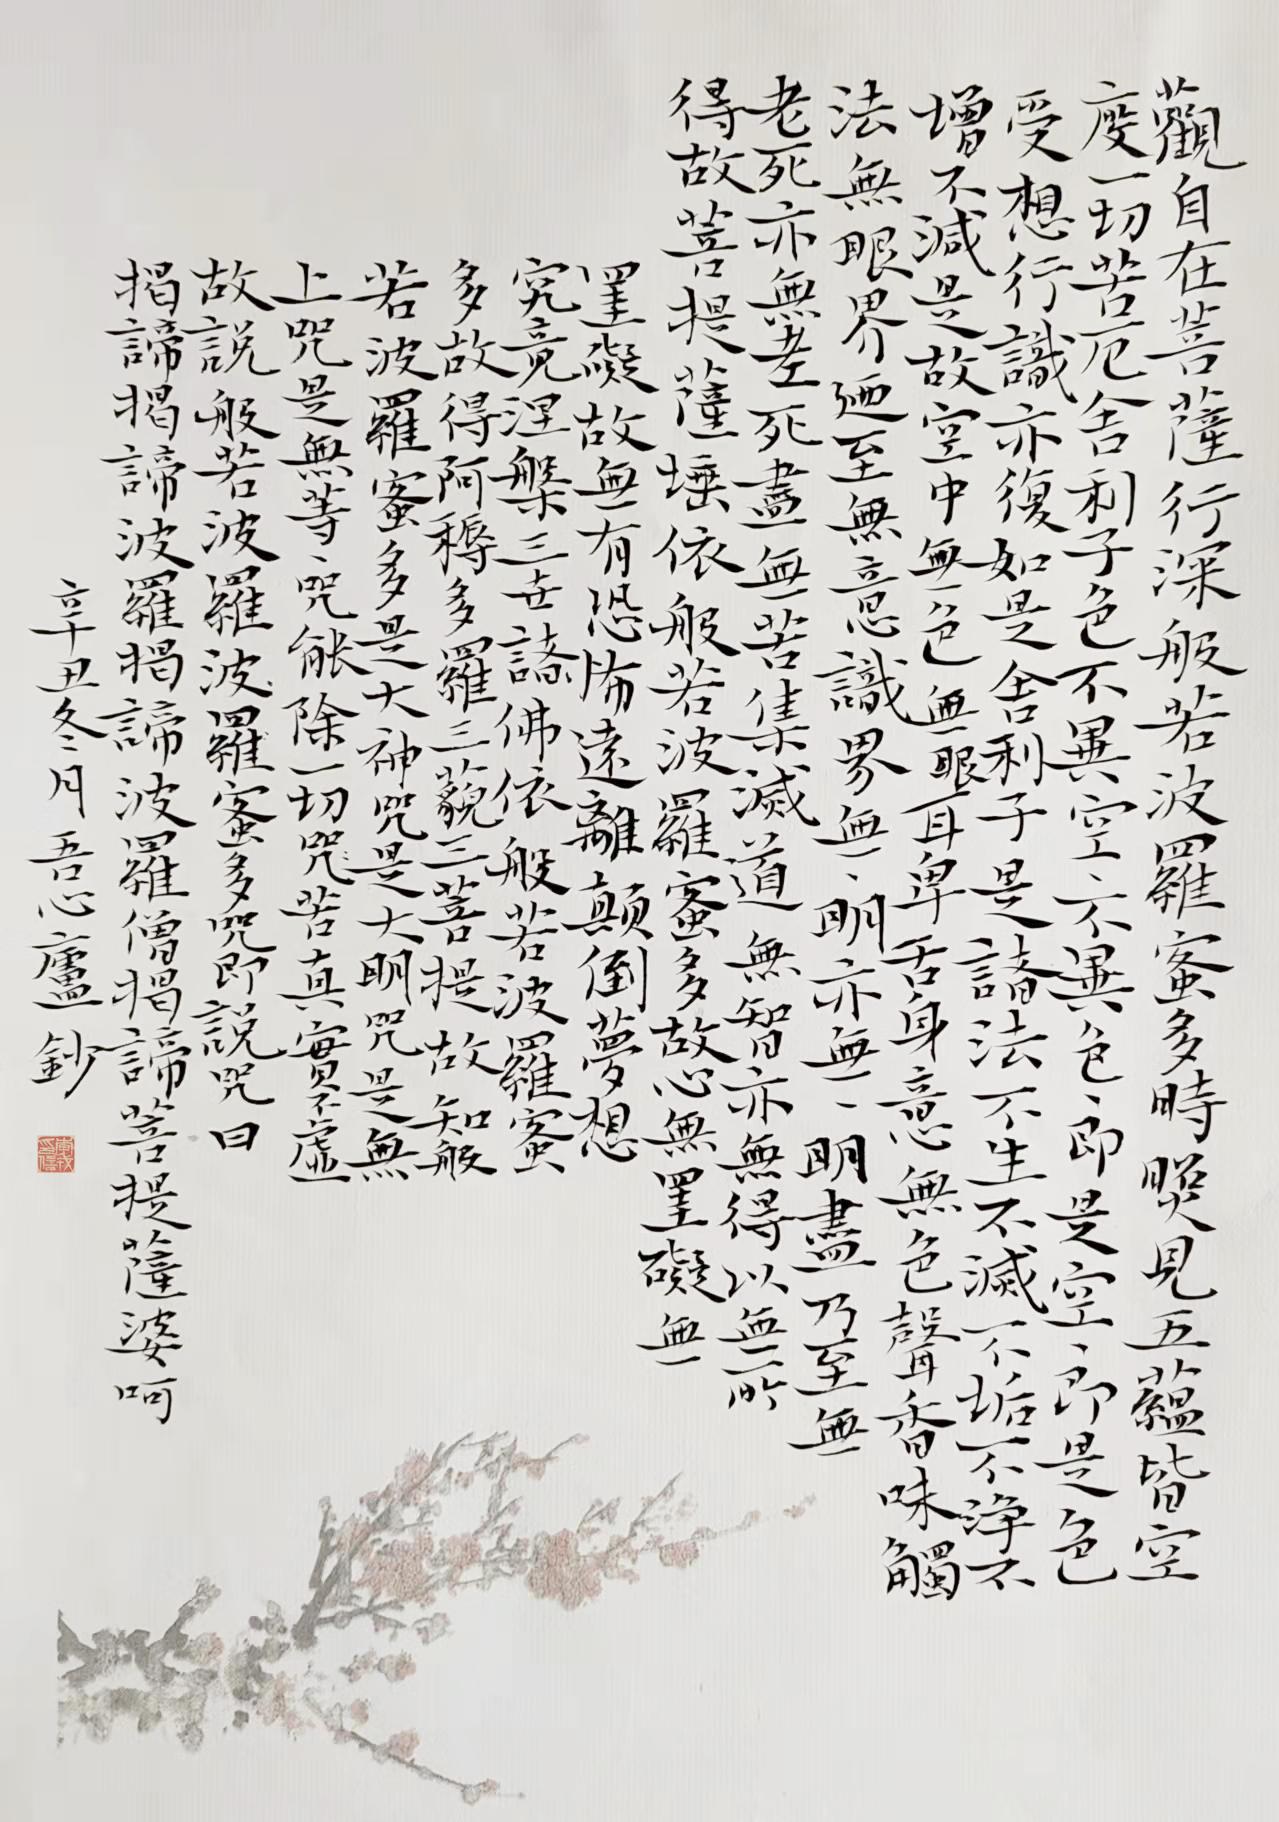 觀自在菩薩行深般若波羅蜜多時照見五蘊皆空
度一切苦厄舍利子色不異空〻不異色〻即是空〻即是色
受想行識亦復如是舍利子是諸法不生不滅不垢不淨不
增不減是故空中無色無眼耳鼻舌身意無色聲香味觸
法無眼界廼至無意識界無〻明亦無〻明盡乃至無
老死亦無老死盡無苦集滅道無智亦無得以無所
得故菩提薩埵依般若波羅蜜多故心無罣礙無
罣礙故無有恐怖遠離顛倒夢想
究竟涅槃三世諸佛依般若波羅蜜
多故得阿耨多羅三藐三菩提故知般
若波羅蜜多是大神咒是大明咒是無
上咒是無等〻咒能除一切咒苦真實不虛
故說般若波羅波羅蜜多咒即說咒曰
揭諦揭諦波羅揭諦波羅僧揭諦菩提薩婆呵
辛丑冬月吾心廬鈔